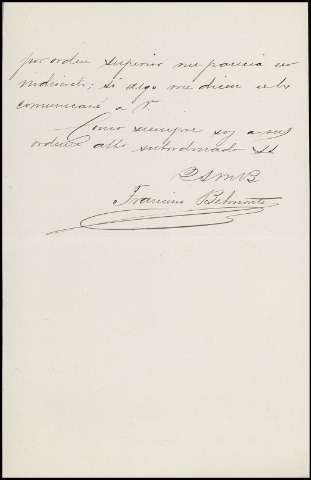 por orden superior me parecia no
indicado; si algo me dicen se lo
comunicaré a V.
Como siempre soy a sus
ordenes affo subordinado SS
Q S M B
Francisco Belmonte